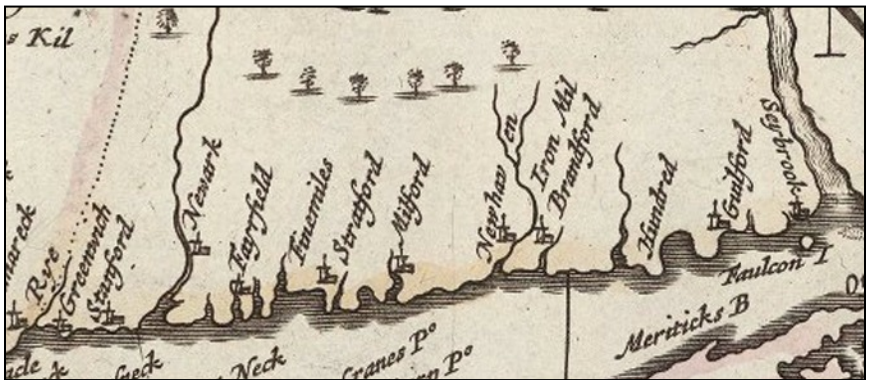 s Kil
mareck
Rye
Greenwich
Stanford
Newark
Fayrfield
Finemiles
Stratford
Milford
Newhaven
Iron Mil
Brandford
Hundred
Guilford
Seybrook
Faulcon I
Meriticks B
Neck
Cranes Pº
Pº